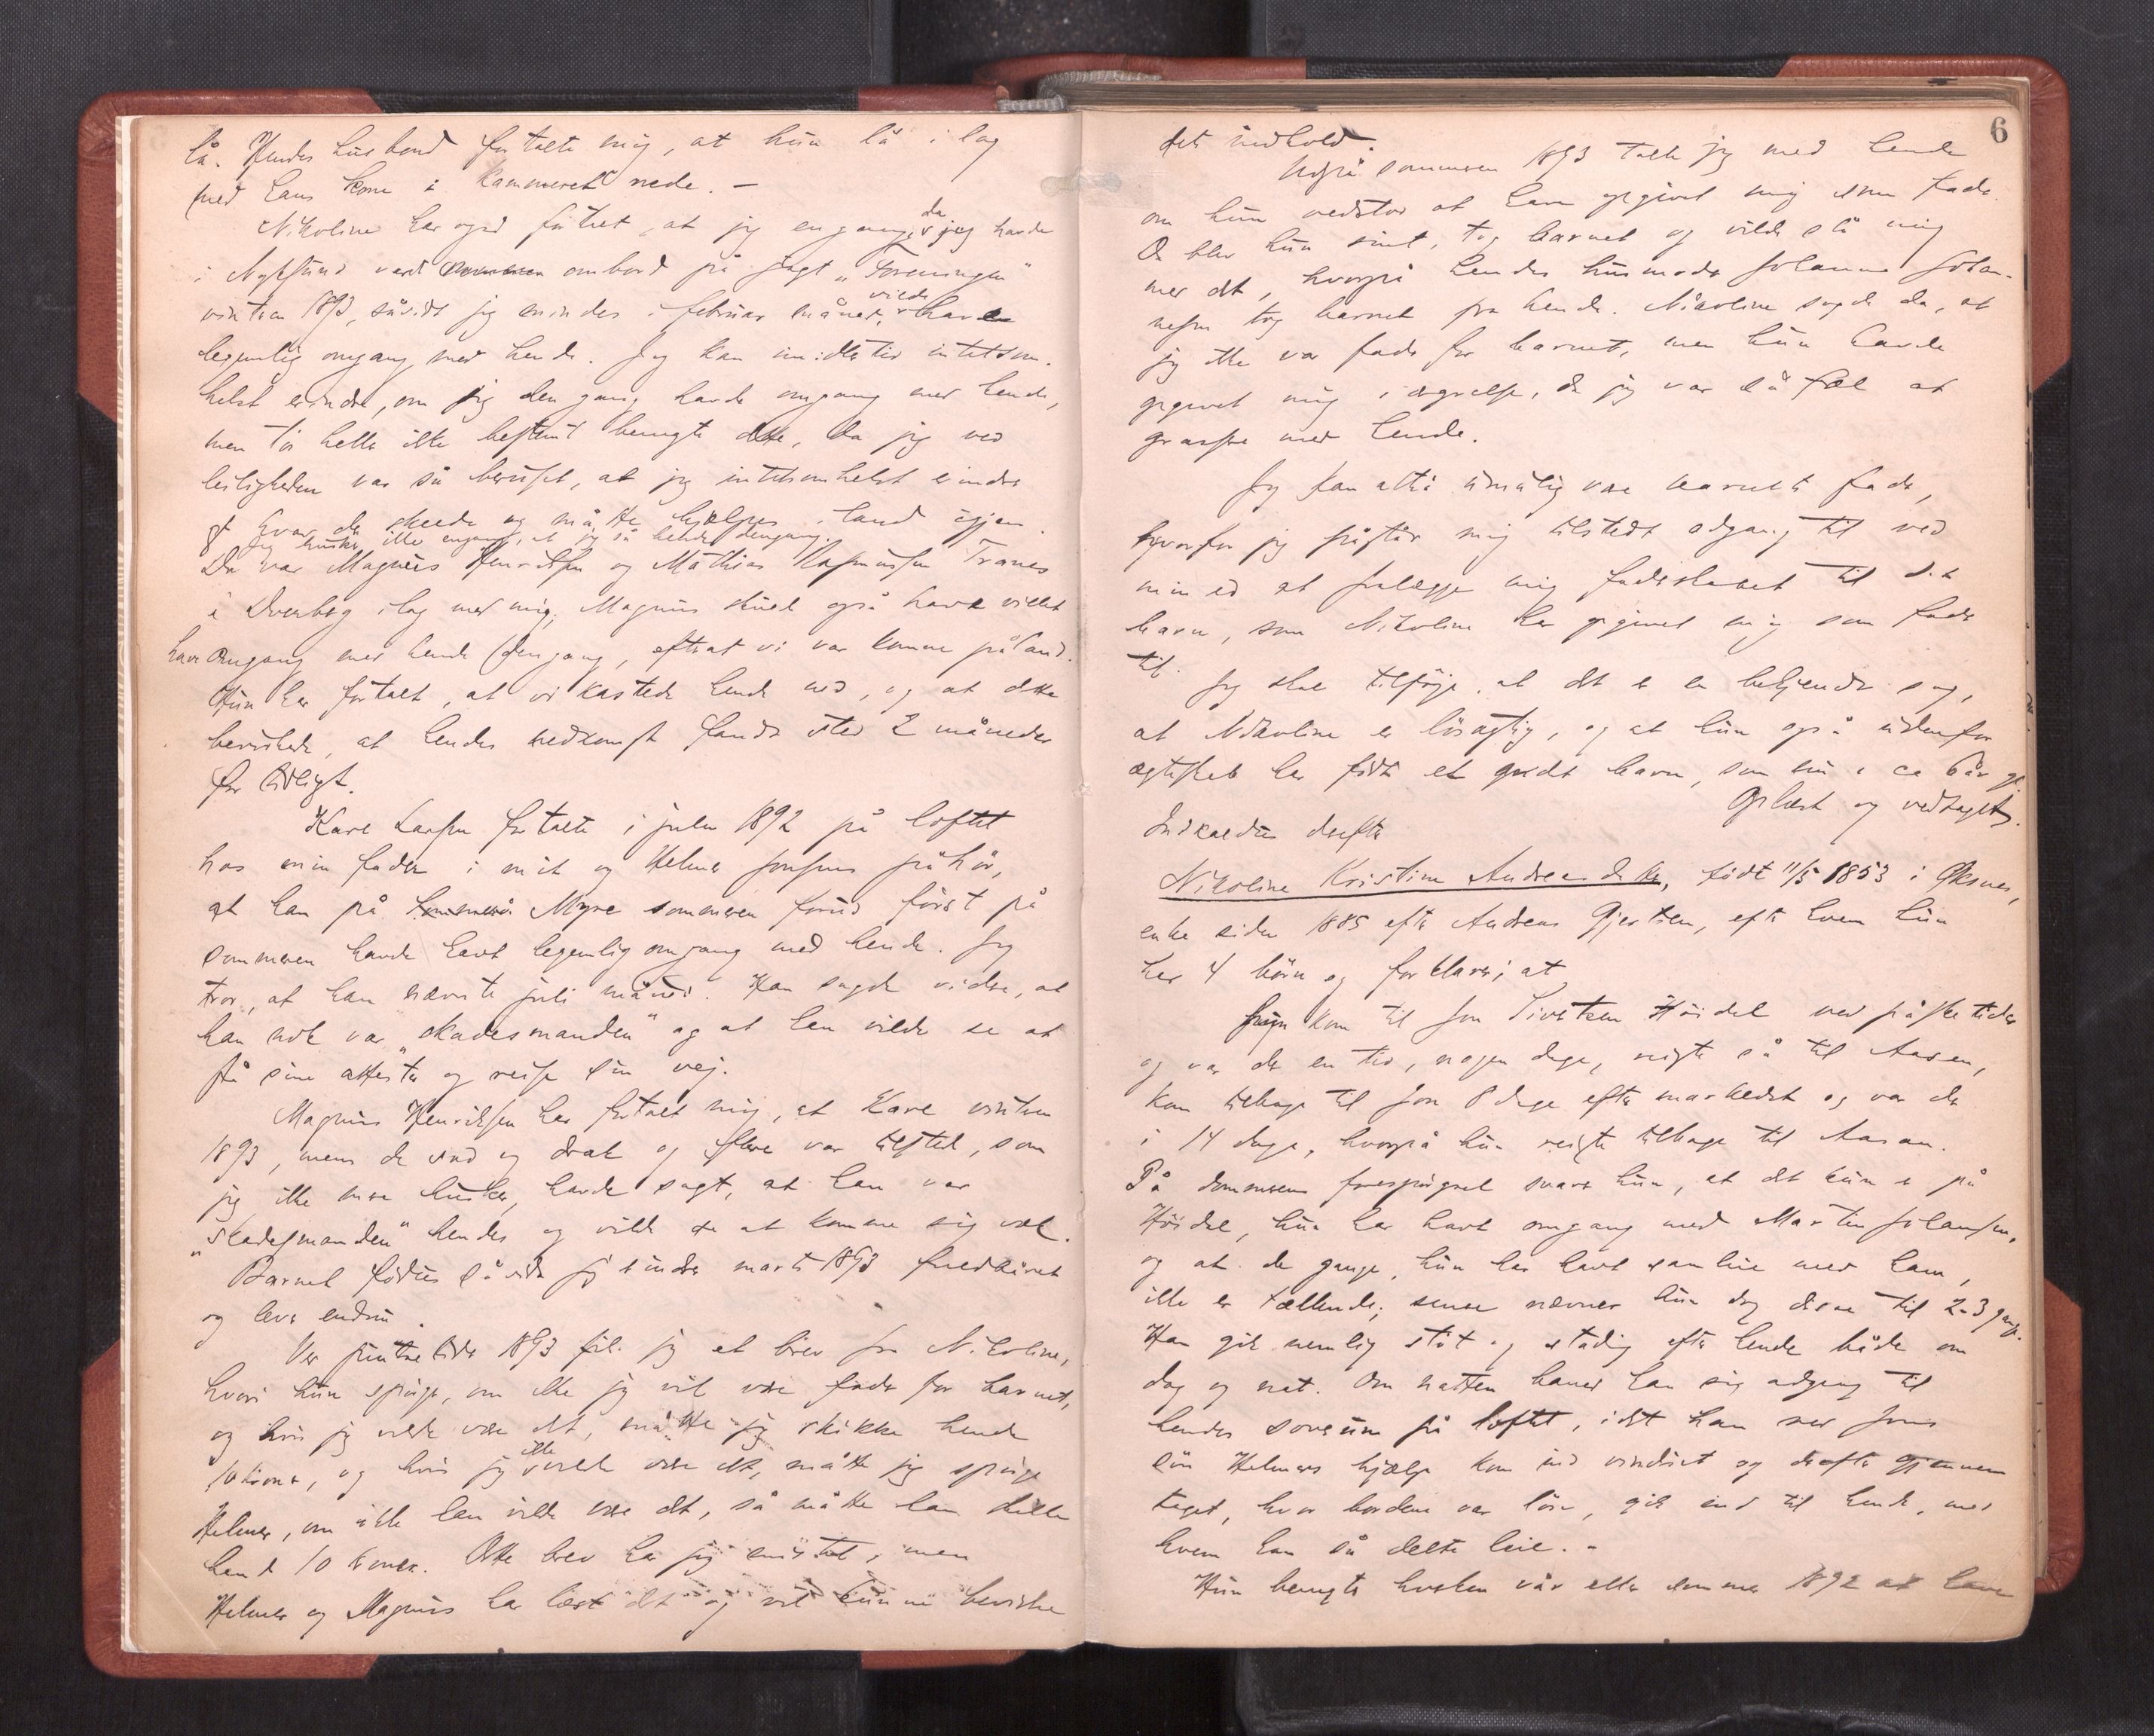 lå. Hendes husbond fortalte mig, at hun lå i lag
med hans kone i kammeret nede. –
Nikoline har også fortalt, at jeg engang, da jeg havde
i Nyksund vært ombord på jagt "Foreningen"
vinteren 1893, såvidt jeg mindes i februar måned, vilde have
legemlig omgang med hende. Jeg kan imidlertid intetsom-
helst erindre, om jeg den gang havde omgang med hende,
men tør heller ikke bestemt benegte dette, da jeg ved
leiligheden var så beruset, at jeg intetsomhelst erindrer
af hvad der skeede og måtte hjælpes i land igjen.
Jeg husker ikke engang, at jeg så hende dengang.
Der var Magnus Henriksen og Mathias Rasmussen Tranes
i Dverberg ilag med mig; Magnus skued også have villet
have omgang med hende dengang, efterat vi var komne på land.
Hun har fortalt, at vi kastede hende ned, og at dette
bevirkede, at hendes nedkomst fandt sted 2 måneder
for tidligt.
Kare Larsen fortalte i julen 1892 på loftet
hos min fader i mit og Helmer Jonsens påhør,
at han på Myre sommeren forud først på
sommeren havde havt legemlig omgang med hende. Jeg
tror, at han nævnte juli måned. Han sagde videre, at
han nok var "skadesmanden" og at han vilde se at
få sine attester og reise sin vej.
Magnus Henriksen har fortalt mig, at Kare vinteren
1893, mens de sad og drak og flere var tilstede, som
jeg ikke mere husker, havde sagt, at han var
"skadesmanden" hendes og vilde se at komme sig væk.
Barnet fødtes såvidt jeg erindrer marts 1893
og lever endnu.
Ved pintsetider 1893 fik jeg et brev fra Nikoline,
hvori hun spurgte, om ikke jeg vil være fader for barnet,
og hvis jeg vilde være det, måtte jeg skikke hende
10 kroner, og hvis jeg ikke vilde være det, måtte jeg spørge
Helmer, om ikke han vilde være det, så måtte han skikke
hende 10 kroner. Dette brev har jeg mistet, men
Helmer og Magnus har læst det og vil kunne bevidne
6
dets indhold.
Udpå sommeren 1893 talte jeg med hende
om hun vedstod at have opgivet mig som fader.
Da blev hun sint, tog barnet og vilde slå mig
med det, hvorpå hendes husmoder Johanna Johan-
nesen tog barnet fra hende. Nikoline sagde da, at
jeg ikke var fader for barnet, men hun havde
opgivet mig i ærgrelse, da jeg var så fæl at
grasse med hende.
Jeg kan altså umulig være barnets fader,
hvorfor jeg påstår mig tilstedt adgang til ved
min ed at fralægge mig faderskabet til det
barn, som Nikoline har opgivet mig som fader
til.
Jeg skal tilføje, at det er en bekjendt sag,
at Nikoline er løsagtig, og at hun også udenfor
ægteskab har født et andet barn, som nu er ca 6 år gl.
Oplæst og vedtaget.
Indkaldtes derefter
Nikoline Kristine Andreasdatter, født 11/5 1853 i Øksnes,
enke siden 1885 efter Andreas Gjertsen, efter hvem hun
har 4 børn og forklarer; at
hun kom til Jon Sivertsen Høidal ved påsketider
og var der en tid, nogen dage, reiste så til Aasen,
kom tilbage til Jon 8 dage efter markedet og var der
i 14 dage, hvorpå hun reiste tilbage til Aasan.
På dommerens forespørgsel svarer hun, at det kun er på
Høidal, hun har havt omgang med Martin Johansen,
og at de gange, hun har havt samleie med ham,
ikke er tællende; senere nævner hun dog disse til 2-3 gange.
Han gik nemlig støt og stadig efter hende både om
dag og nat. Om natten baned han sig adgang til
hendes soverum på loftet, idet han ved Jons
søn Helmers hjælp kom ind vinduet og derefter gjennem
taget, hvor bordene var løse, gik ind til hende, med
hvem han så delte leie. –
Hun benegter hverken vår eller sommer 1892 at have